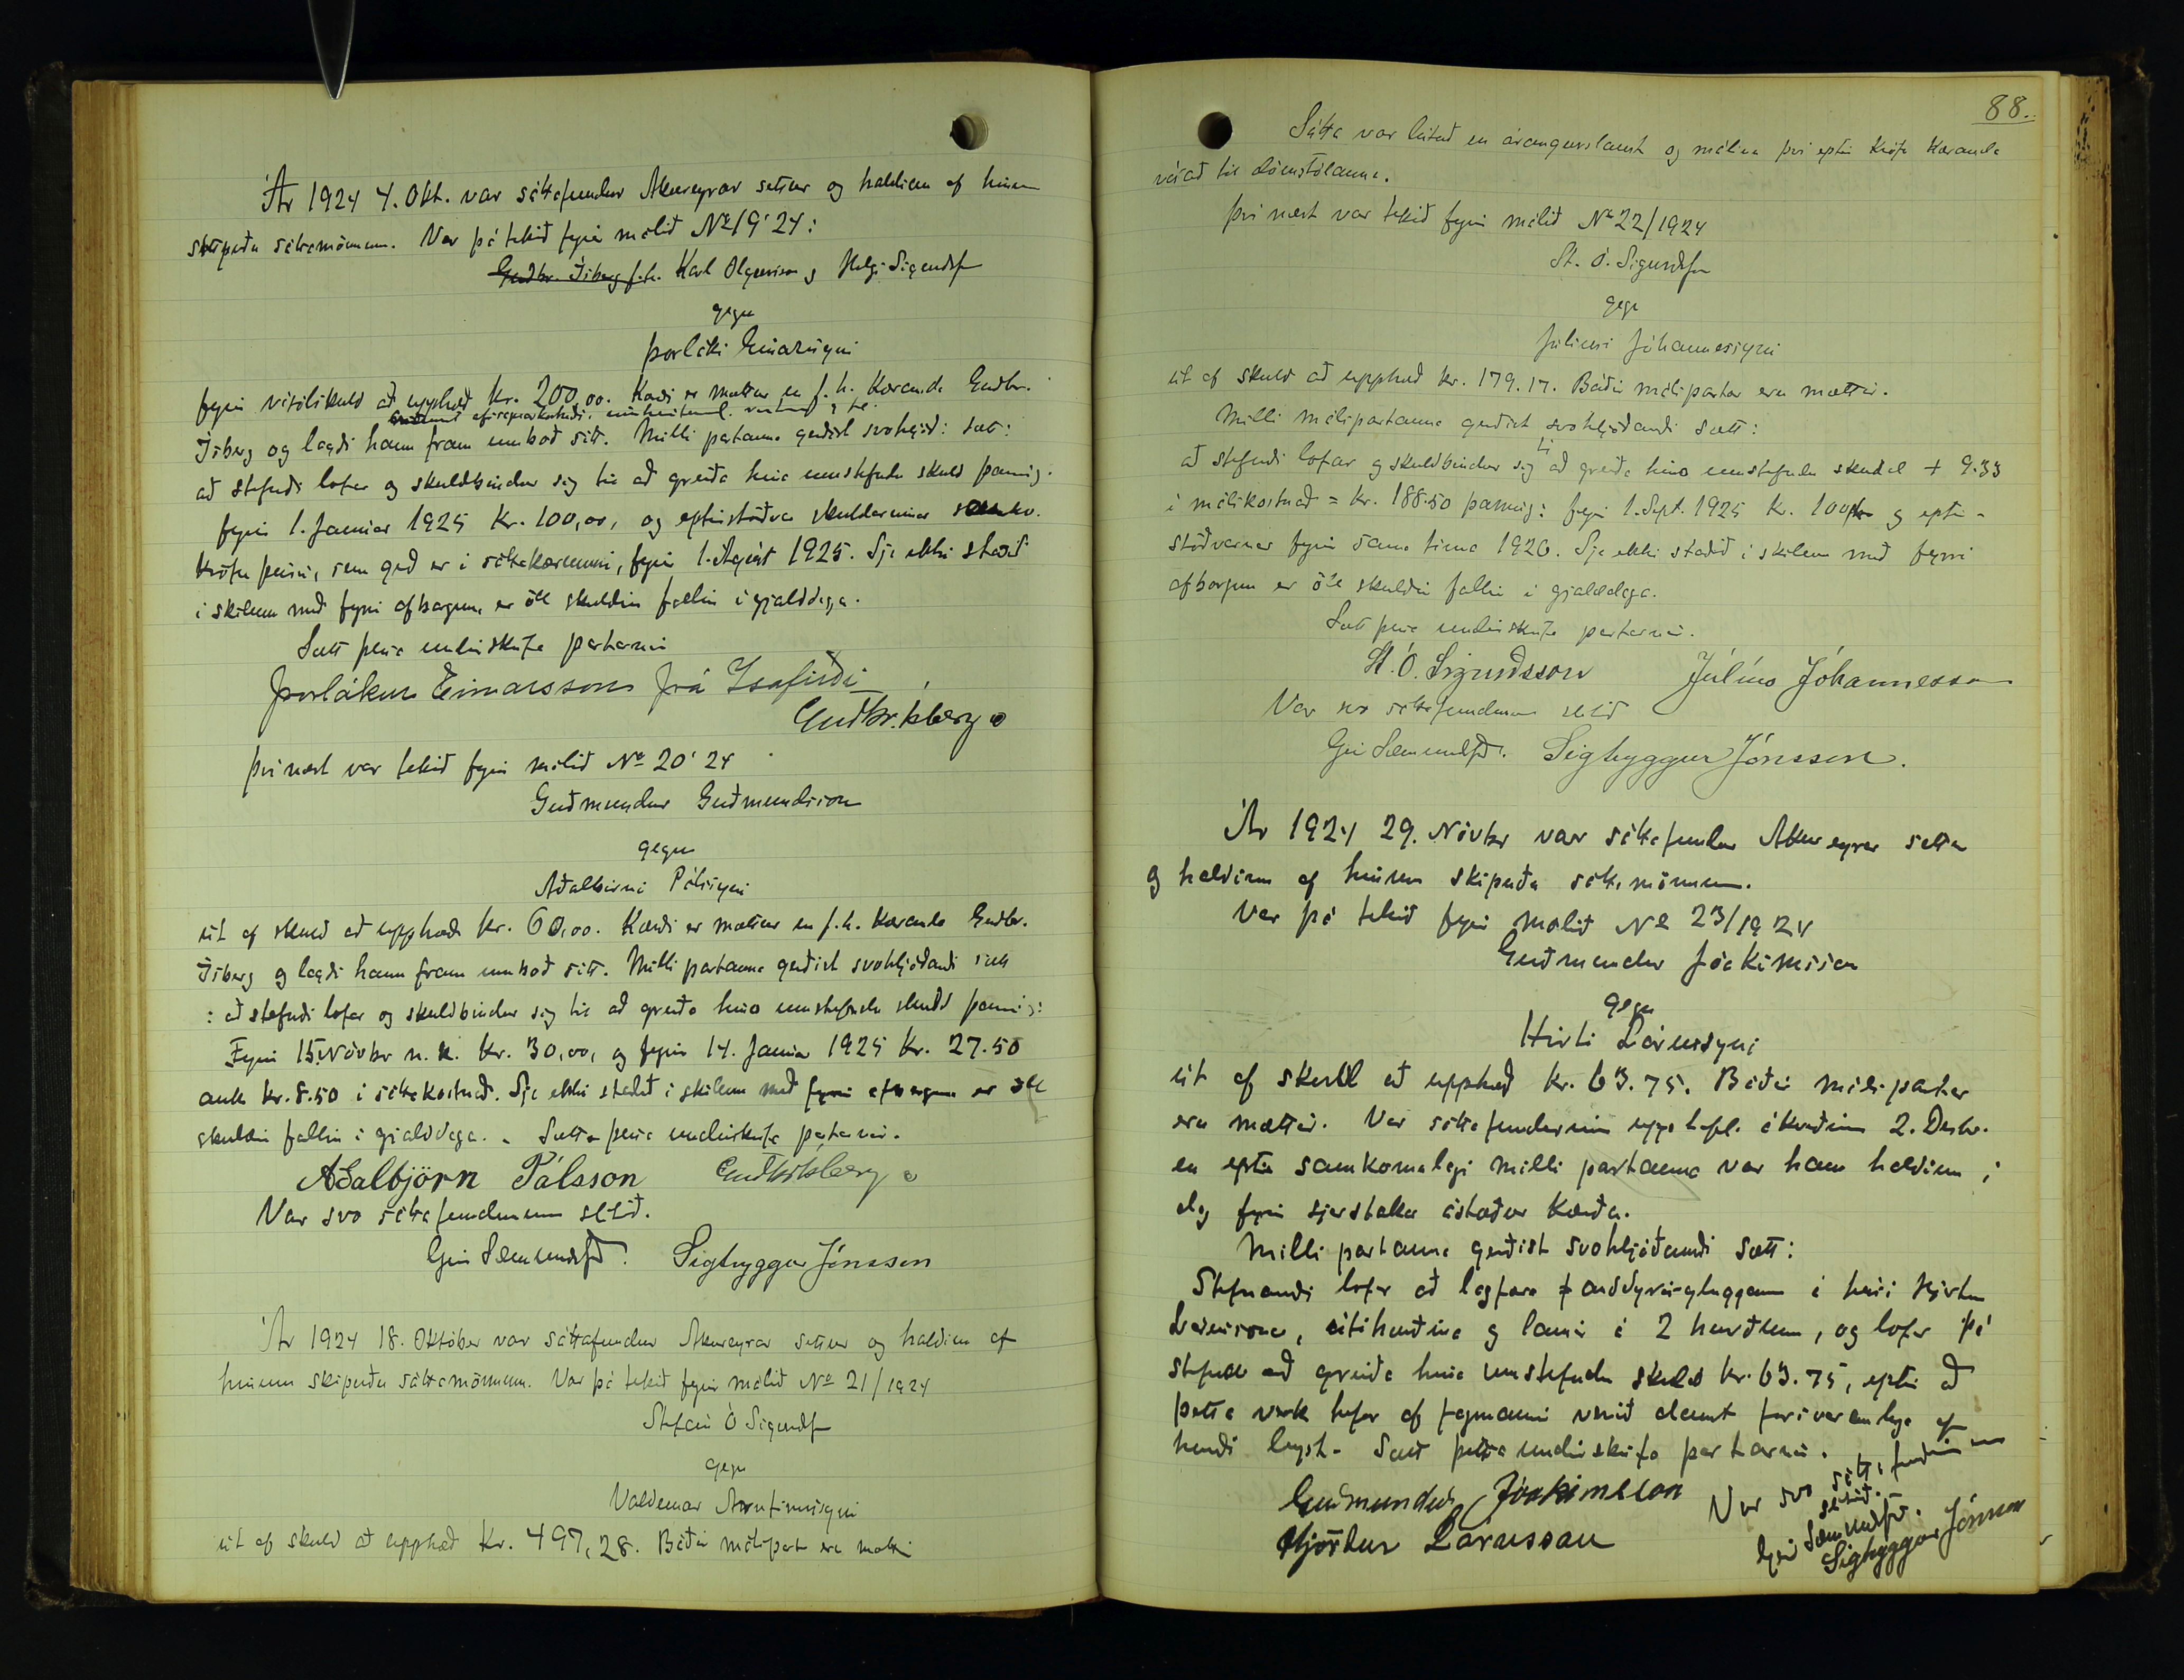 Ár 1924 4. Okt. var sáttafundur Akureyrar settur og haldinn af hinum
skipuðu sáttamönnum. Var þá tekið fyrir málið No 19' 24:
Guðbr. Ísberg f.h. Karl Olgeirsson og Helgi Sigurdss
gegn
Þorláki Einarssyni
fyrir víxilskuld að upphæð kr. 200,00. Kærði er mættur en f.h. kæranda Guðbr.
Ísberg og lagði hann fram umboð sitt. Milli partanna gerðist svohljóð: sætt:
að stefndi lofar og skuldbindur sig til að greiða hina umstefndu skuld þannig:
fyrir 1. Janúar 1925 Kr. 100,00, og eftirstöðvar skuldarinnar
kröfu þeirri, sem gerð er í sáttakærunni, fyrir 1. Ágúst 1925. Sje ekki staðið
í skilum með fyrri afborgun, er öll skuldin fallin í gjalddaga.
Sætt þessa undirskrifa partarnir
Þorlákur Einarsson frá Ísafirði
Guðbr. Ísberg
Því næst var tekið fyrir málið No 20' 24
Guðmundur Guðmundsson
gegn
Aðalbirni Pálssyni
út af skuld að upphæð kr. 60,00. Kærði er mættur en f.h. kæranda Guðbr.
Ísberg og lagði hann fram umboð sitt. Milli partanna gerðist svohljóðandi sætt
: að stefndi lofar og skuldbindur sig til að greiða hina umstefndu skuld þannig:
Fyrir 15. Nóvbr n.k. kr. 30,00, og fyrir 14. Janúar 1925 Kr. 27.50
auk kr. 8.50 í sáttakostnað. Sje ekki staðið í skilum með fyrri afborgun er öll
skuldin fallin í gjalddaga. - Sætt þessa undirskrifa partarnir.
Aðalbjörn Pálsson Guðbr Ísberg
Var svo sáttafundinum slitið.
Geir Sæmundss. Sigtryggur Jónsson
Ár 1924 18. Október var sáttafundur Akureyrar settur og haldinn af
hinum skipuðu sáttamönnum. Var þá tekið fyrir málið No 21/1924
Stefán Ó Sigurdss
gegn
Valdemar Arnfinnssyni
út af skuld að upphæð Kr. 497,28. Báðir málspartar eru mættir
88.
Sátta var leitað en árangurslaust og málinu því eptir kröfu kæranda
vísað til dómstólanna.
Því næst var tekið fyrir málið No 22/1924
St. Ó. Sigurdsson
gegn
Júlíusi Jóhannessyni
út af skuld að upphæð kr. 179.17. Báðir málspartar eru mættir.
Milli málspartanna gerðist svohljóðandi sætt:
að stefndi lofar og skuldbindur sig til að greiða hina umstefndu skuld + 9.33
í málskostnað = kr. 188.50 þannig: fyrir 1. Sept. 1925 kr. 100 og eptir-
stöðvarnar fyrir sama tíma 1926. Sje ekki staðið í skilum með fyrri
afborgun er öll skuldin fallin í gjalddaga.
Sætt þessa undirskrifa partarnir.
St. Ó. Sigurðsson Júlíus Jóhannesson
Var svo sáttafundinum slitið
Geir Sæmundss. Sigtryggur Jónsson.
Ár 1924 29. Nóvbr var sáttafundur Akureyrar settur
og haldinn af hinum skipuðu sáttamönnum.
Var þá tekið fyrir málið No 23/1924
Guðmundur Jóakimsson
gegn
Hirti Lárussyni
út af skuld að upphæð kr. 63.75. Báðir málspartar
eru mættir. Var sáttafundurinn upphafl. ákveðinn 2. Desbr.
en eptir samkomulagi milli partanna var hann haldinn í
dag fyrir sjerstakar ástæður kærða.
Milli partanna gerðist svohljóðandi sætt:
Stefnandi lofar að lagfæra anddyrisgluggann í húsi Hjartar
Lárussonar, útihurðina og lamir á 2 hurðum, og lofar þá
stefndi að greiða hina umstefndu skuld kr. 63.75, eptir að
þetta verk hefur af fagmanni verið dæmt forsvaranlega af
hendi leyst. Sætt þessa undirskrifa partarnir.
Guðmundur Jóakimsson
Hjörtur Lárusson
Var svo sáttafundinum
slitið.
Geir Sæmundss.
Sigtryggur Jónsson